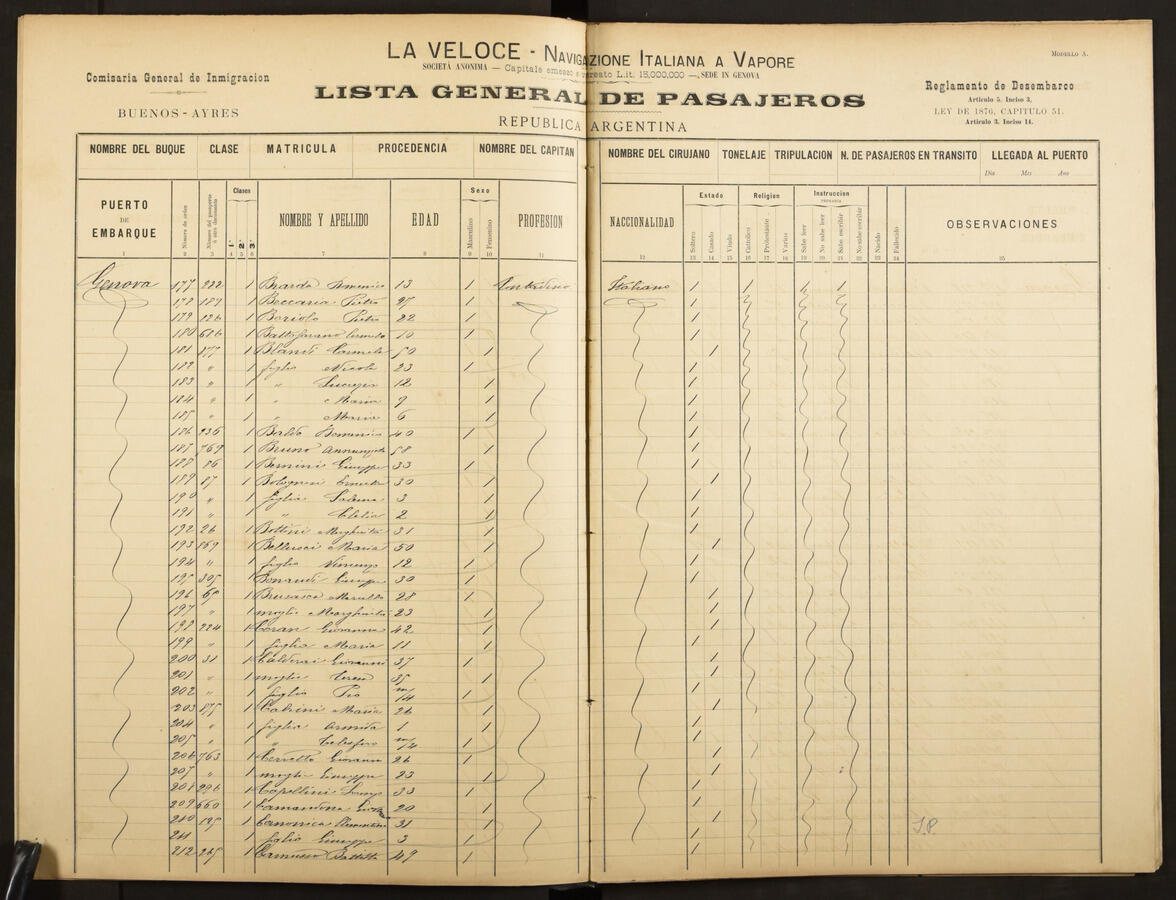 LA VELOCE - NAVIGAZIONE ITALIANA A VAPORE
MODULLO A.
SOCIETÀ ANONIMA — Capitale emesso e versato L.it. 15,000,000 — SEDE IN GENOVA
Comisaria General de Inmigracion
BUENOS-AYRES
LISTA GENERAL DE PASAJEROS
REPUBLICA ARGENTINA
Reglamento de Desembarco
Articulo 5. Inciso 3,
LEY DE 1876, CAPITULO 51.
Articulo 3. Inciso 14.
NOMBRE DEL BUQUE CLASE MATRICULA PROCEDENCIA NOMBRE DEL CAPITAN NOMBRE DEL CIRUJANO TONELAJE TRIPULACION N. DE PASAJEROS EN TRANSITO LLEGADA AL PUERTO
Dia Mes Ano
PUERTO DE EMBARQUE Número de orden Clases 1. 2. 3. NOMBRE Y APELLIDO EDAD Sexo Masculino Femenino PROFESION NACCIONALIDAD Estado Soltero Casado Viudo Religion Cattolico Protestante Varios Instruccion PRIMARIA Sabe leer No sabe leer Sabe escribir No sabe escribir Nacido Fallecido OBSERVACIONES
1 2 3 4 5 6 7 8 9 10 11 12 13 14 15 16 17 18 19 20 21 22 23 24 25
Genova 177 222 1 Domenico 13 1 Contadino Italiano 1 1 1 1
178 189 1 Beccaria Pietro 27 1 1
179 226 1 Boriolo Pietro 22 1 1
180 1 10 1 1
181 877 1 Blandi Carmela 50 1 1
182 " 1 figlio Nicola 23 1 1
183 " 1 " Lucrezia 12 1 1
184 " 1 " Maria 9 1 1
185 " 1 " Maria 6 1 1
186 236 1 Baldo Domenico 40 1 1
187 769 1 Bruno Annunziata 58 1 1
188 86 1 Bonini Giuseppe 33 1 1
189 87 1 Bolognesi 30 1 1
190 " 1 figlia 3 1 1
191 " 1 " Clelia 2 1 1
192 26 1 Bottini Margherita 31 1 1
193 869 1 Bellucci Maria 50 1 1
194 " 1 figlio Vincenzo 12 1 1
195 305 1 Giuseppe 30 1 1
196 65 1 Brusasca Marcello 28 1 1
197 " 1 moglie Margherita 23 1 1
198 224 1 Coran Giovanna 42 1 1
199 " 1 figlia Maria 11 1 1
200 31 1 Calderai Giovanni 37 1 1
201 " 1 moglie 35 1 1
202 " 1 figlio Pio m/14 1 1
203 875 1 Maria 26 1 1
204 " 1 figlia Armida 1 1 1
205 " 1 " m/4 1 1
206 763 1 Cerretto Giovanni 26 1 1
207 " 1 moglie Giuseppa 23 1 1
208 296 1 Capellini 33 1 1
209 660 1 Camandona 20 1 1
210 125 1 Canonica Clementina 31 1 1
211 1 figlio Giuseppe 3 1 1
212 265 1 Camusso Battista 49 1 1
J.P.